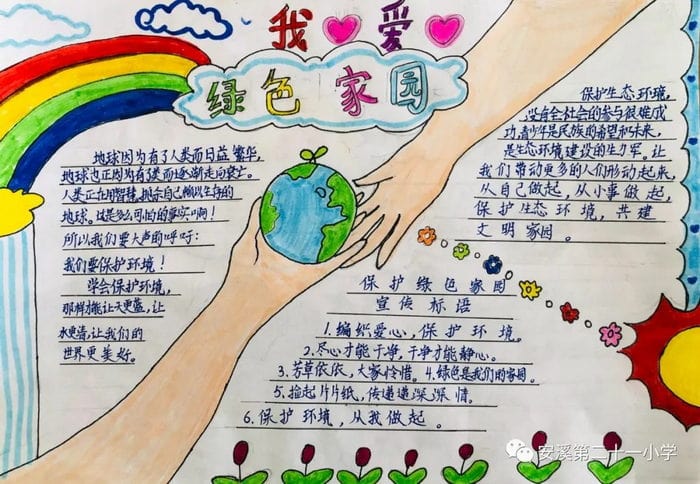 我爱
绿色家园
地球因为有了人类而日益繁华,
地球也正因为有了人类而逐渐走向衰亡。
人类正在用智慧,挑战自己赖以生存的
地球。这是多么可怕的事实啊!
所以我们要大声的呼吁:
我们要保护环境!
学会保护环境,
那样才能让天更蓝,让
水更清,让我们的
世界更美好。
保护生态环境,
没有全社会的参与很难成
功,青少年是民族的希望和未来,
是生态环境建设的生力军。让
我们带动更多的人们行动起来,
从自己做起,从小事做起,
保护生态环境,共建
文明家园。
保护绿色家园
宣传标语
1.编织爱心,保护环境。
2.尽心才能干净,干净才能静心。
3.芳草依依,大家怜惜。4.绿色是我们的家园。
5.捡起片片纸,传递深深情。
6.保护环境,从我做起。
安溪第二十一小学